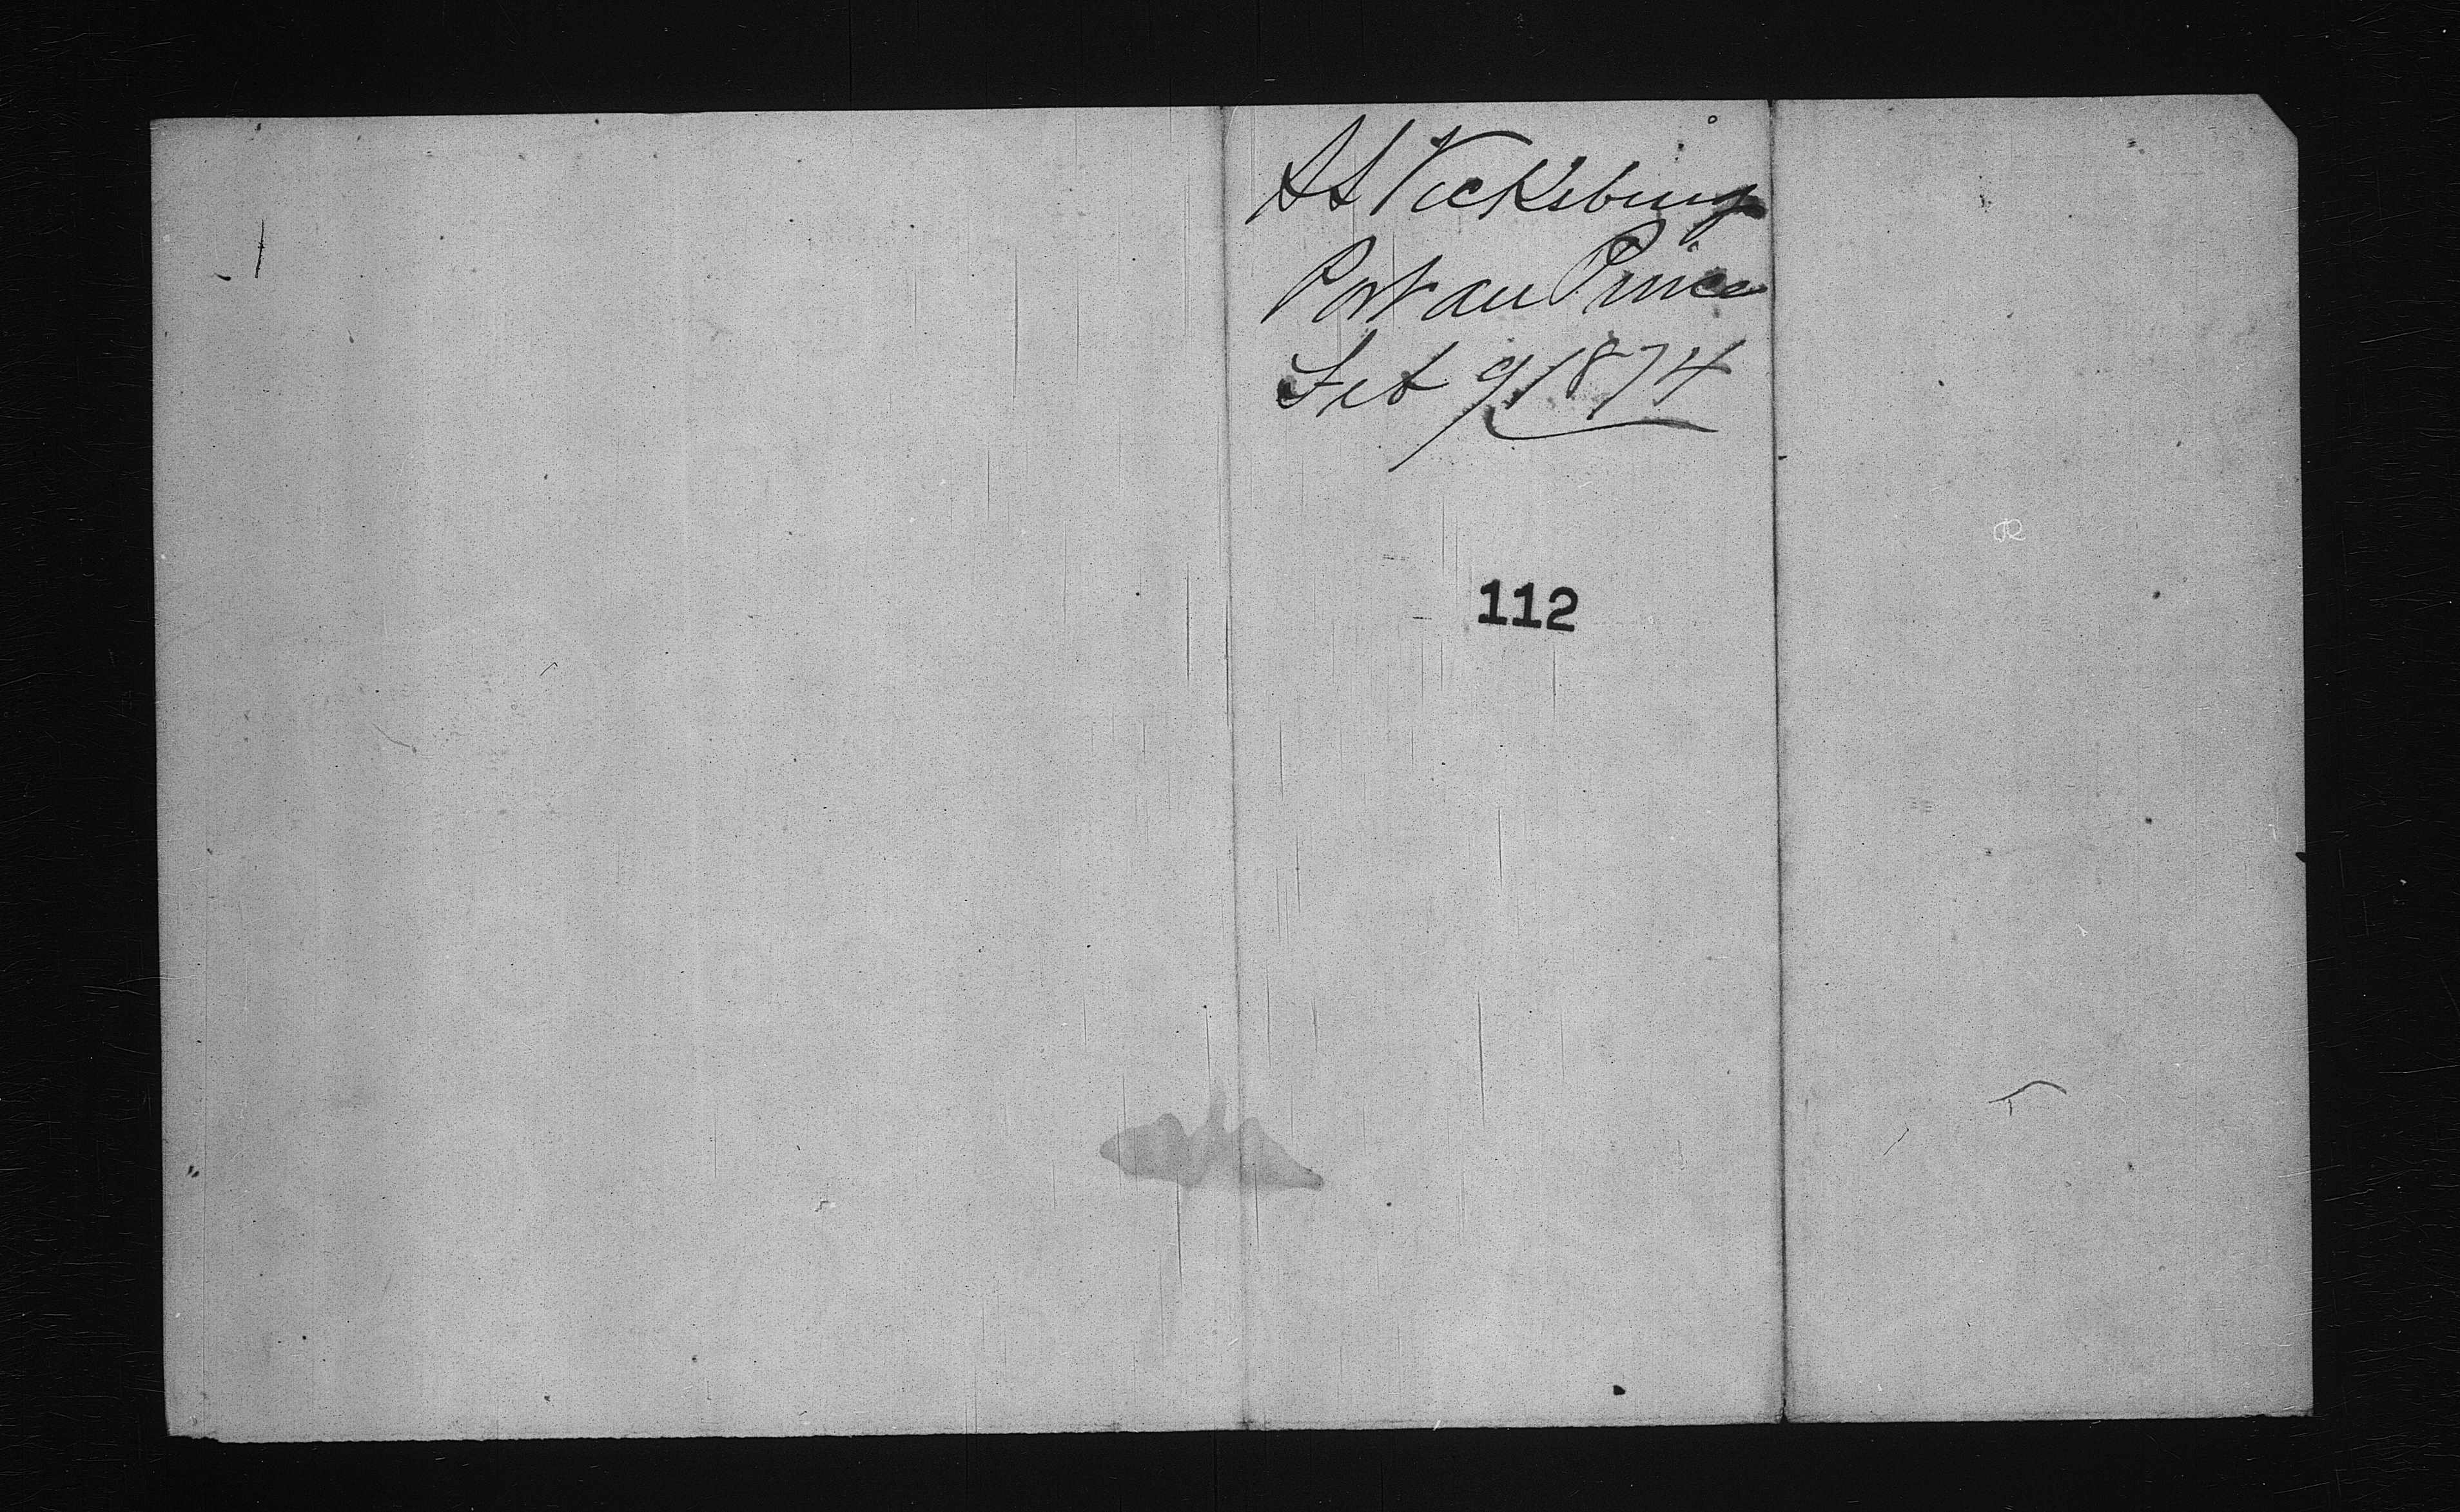 SS Vicksburg
Port au Prince
Feb 9/1874
112